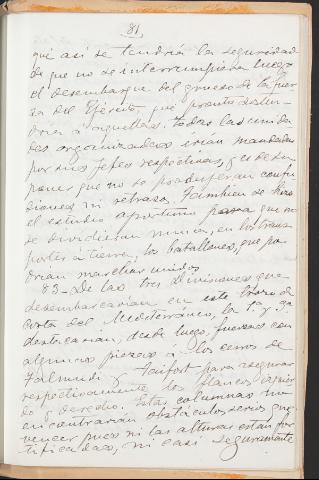 81.
que así se tendría la seguridad
de que no se interrumpiría luego
el desembarque del grueso de la fuer-
za del Ejército que pronto
a aquellas. Todas las unida-
des organizadas irían mandadas
por sus Jefes respectivos, y es de su-
poner que no se produjeran confu-
siones ni retraso. También se hizo
el estudio oportuno para que no
se dividieran nunca, en los trans-
portes a tierra, los batallones, que po-
drían marchar unidos
83.- De las tres Divisiones que
desembarcarían en este trozo de
costa del Mediterráneo, la 1ª y 3ª
destacarían, desde luego, fuerzas con
algunas piezas á los cerros de
y para asegurar
respectivamente los flancos izquier-
do y derecho. Estas columnas no
encontrarán obstáculos serios que
vencer pues ni las alturas están for-
tificadas, ni casi seguramente